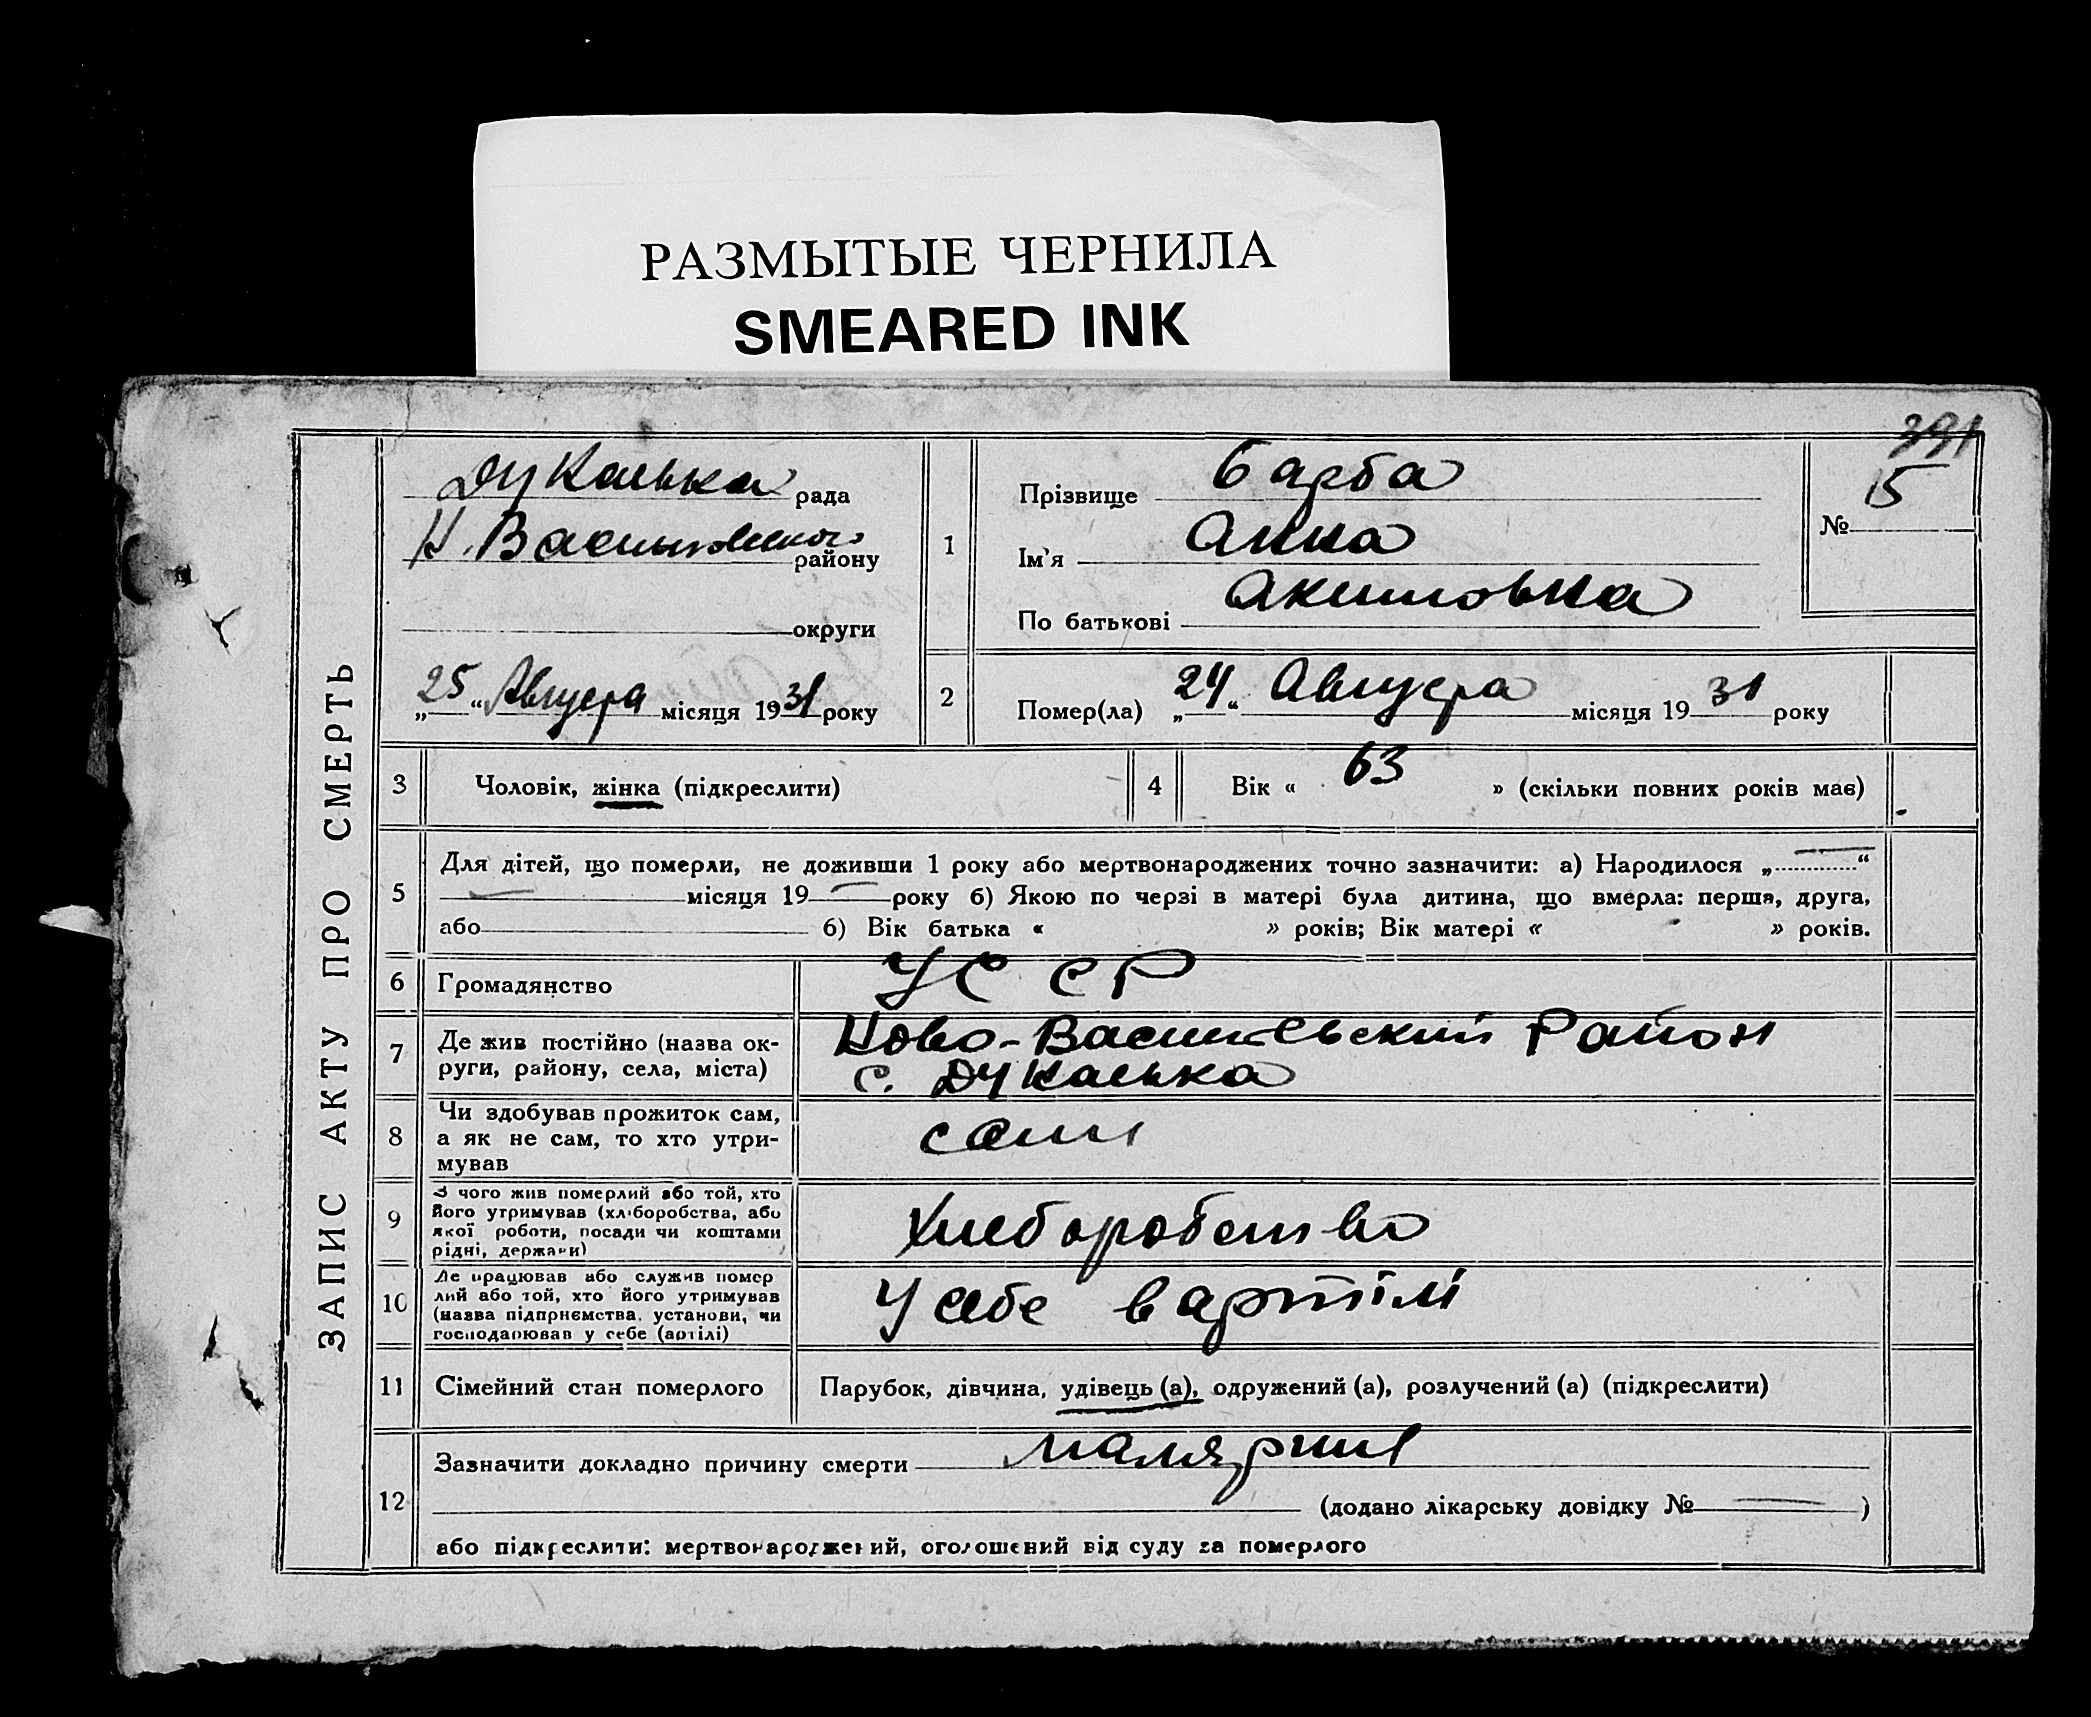 РАЗМЫТЫЕ ЧЕРНИЛА
SMEARED INK
391
ЗАПИС АКТУ ПРО СМЕРТЬ
Дуканька рада
Н. Василовского району
округи
„25“ Августа місяця 1931 року
1
Прізвище Барба
Ім'я Анна
По батькові Акимовна
№ 15
2 Помер(ла) „24“ Августа місяця 1931 року
3 Чоловік, жінка (підкреслити)
4 Вік « 63 » (скільки повних років має)
5 Для дітей, що померли, не доживши 1 року або мертвонароджених точно зазначити: а) Народилося „—“
— місяця 19— року б) Якою по черзі в матері була дитина, що вмерла: перша, друга,
або б) Вік батька « » років; Вік матері « » років.
6 Громадянство УССР
7 Де жив постійно (назва ок-
руги, району, села, міста)
Ново-Василевский Район
с. Дуканька
8 Чи здобував прожиток сам,
а як не сам, то хто утри-
мував
сами
9 З чого жив померлий або той, хто
його утримував (хліборобства, або
якої роботи, посади чи коштами
рідні, держави)
Хлеборобство
10 Де працював або служив помер
лий або той, хто його утримував
(назва підприємства, установи, чи
господарював у себе (артілі)
У себе в артілі
11 Сімейний стан померлого Парубок, дівчина, удівець (а), одружений (а), розлучений (а) (підкреслити)
12 Зазначити докладно причину смерти малярии
(додано лікарську довідку № — )
або підкреслити: мертвонароджений, оголошений від суду за померлого